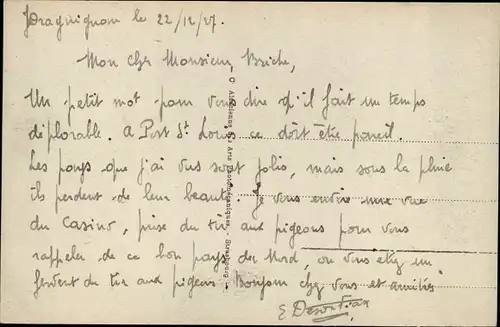 Draguignan le 22/12/27.
Mon cher Monsieur Briche,
Un petit mot pour vous dire qu'il fait un temps
déplorable. A Port St Louis ce doit être pareil.
Les pays que j'ai vus sont jolis, mais sous la pluie
ils perdent de leur beauté. Je vous envoie une vue
du Casino, prise du tir aux pigeons pour vous
rappeler de ce bon pays du Nord, ou vous etiez un
fervent du tir aux pigeons Bonjour chez vous et amitiés
E
Cie Alsacienne des Arts Photomécaniques, Strasbourg